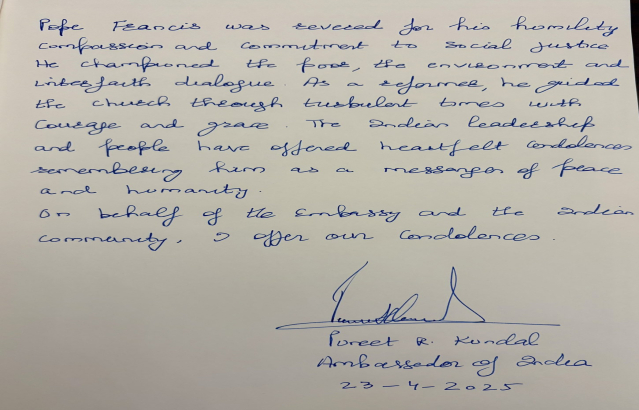 Pope Francis was revered for his humility
compassion and commitment to social justice
He championed the poor, the environment and
interfaith dialogue. As a reformer, he guided
the church through turbulent times with
Courage and grace. The Indian leadership
and people have offered heartfelt condolences
remembering him as a messenger of peace
and humanity.
On behalf of the Embassy and the Indian
community, I offer our Condolences.
Puneet R. Kundal
Ambassador of India
23-4-2025